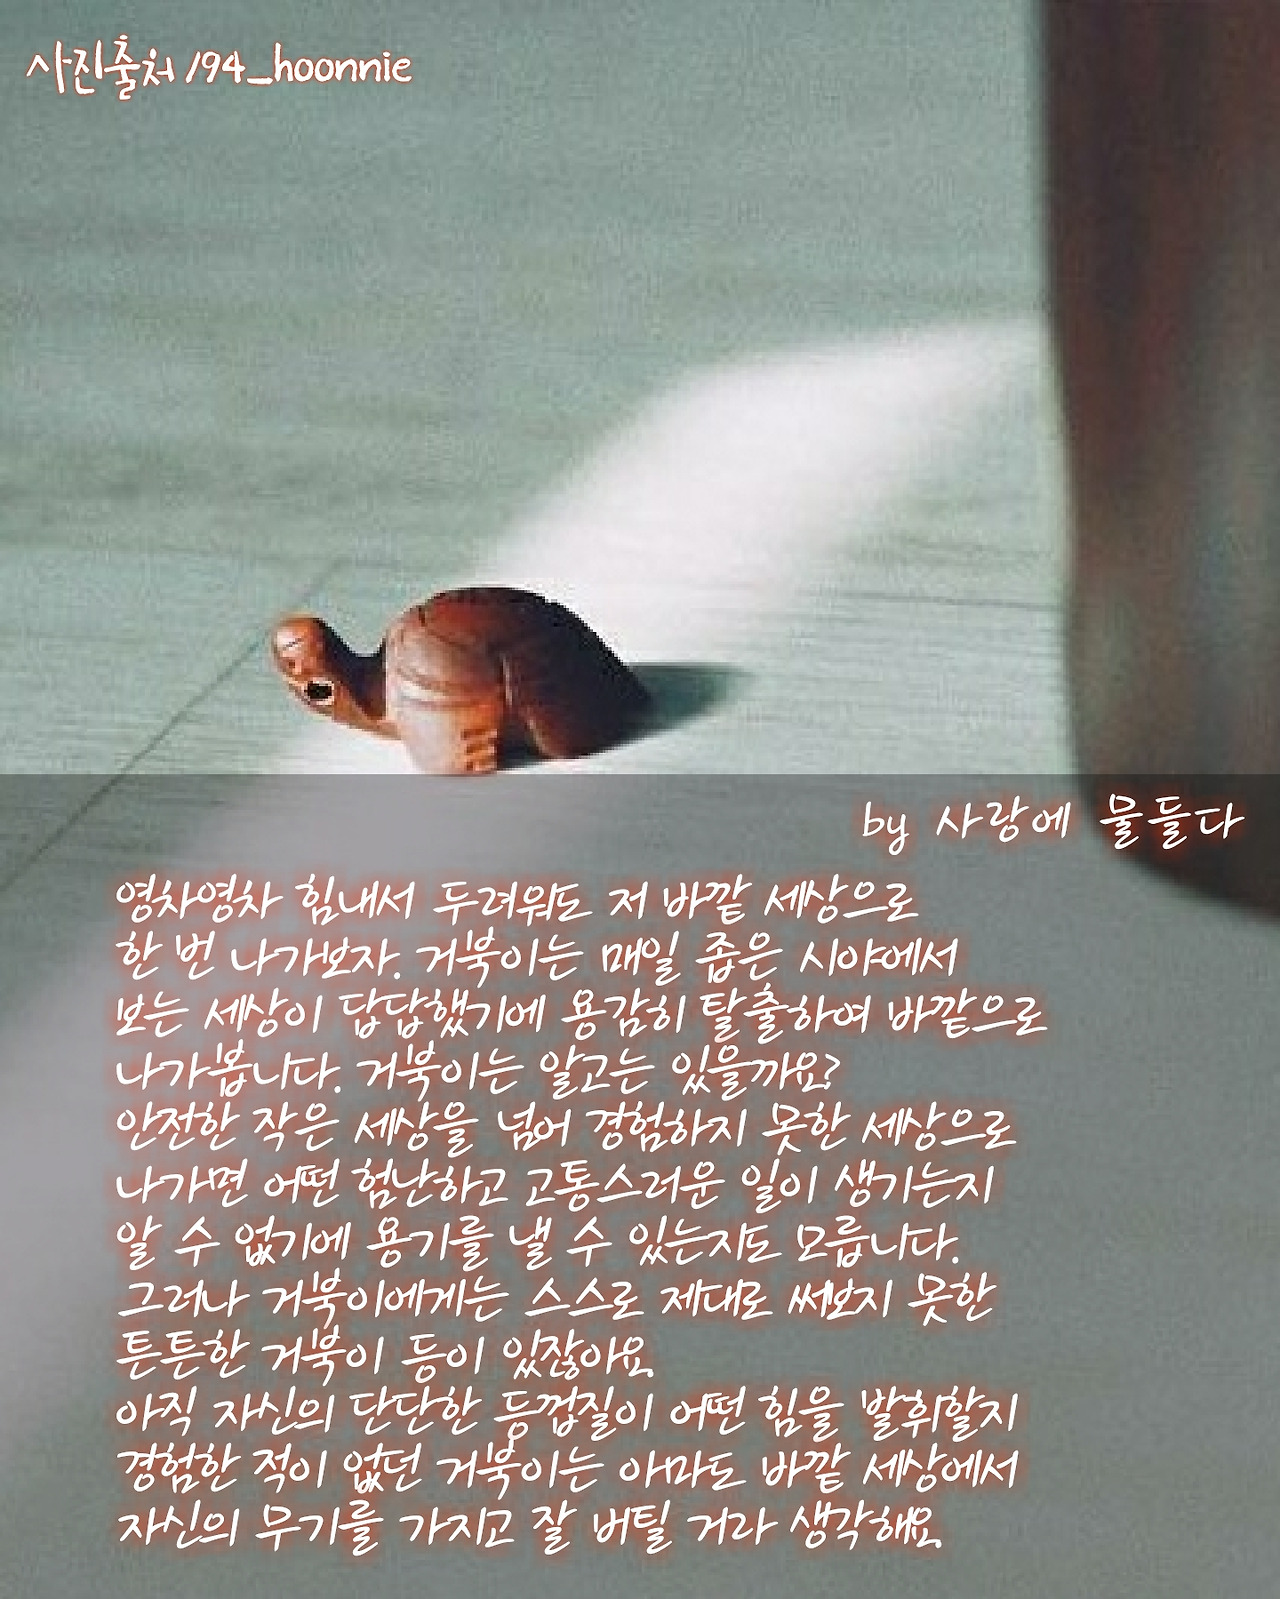 사진출처 /94_hoonnie
by 사랑에 물들다
영차영차 힘내서 두려워도 저 바깥 세상으로
한 번 나가보자. 거북이는 매일 좁은 시야에서
보는 세상이 답답했기에 용감히 탈출하여 바깥으로
나가봅니다. 거북이는 알고는 있을까요?
안전한 작은 세상을 넘어 경험하지 못한 세상으로
나가면 어떤 험난하고 고통스러운 일이 생기는지
알 수 없기에 용기를 낼 수 있는지도 모릅니다.
그러나 거북이에게는 스스로 제대로 써보지 못한
튼튼한 거북이 등이 있잖아요.
아직 자신의 단단한 등껍질이 어떤 힘을 발휘할지
경험한 적이 없던 거북이는 아마도 바깥 세상에서
자신의 무기를 가지고 잘 버틸 거라 생각해요.